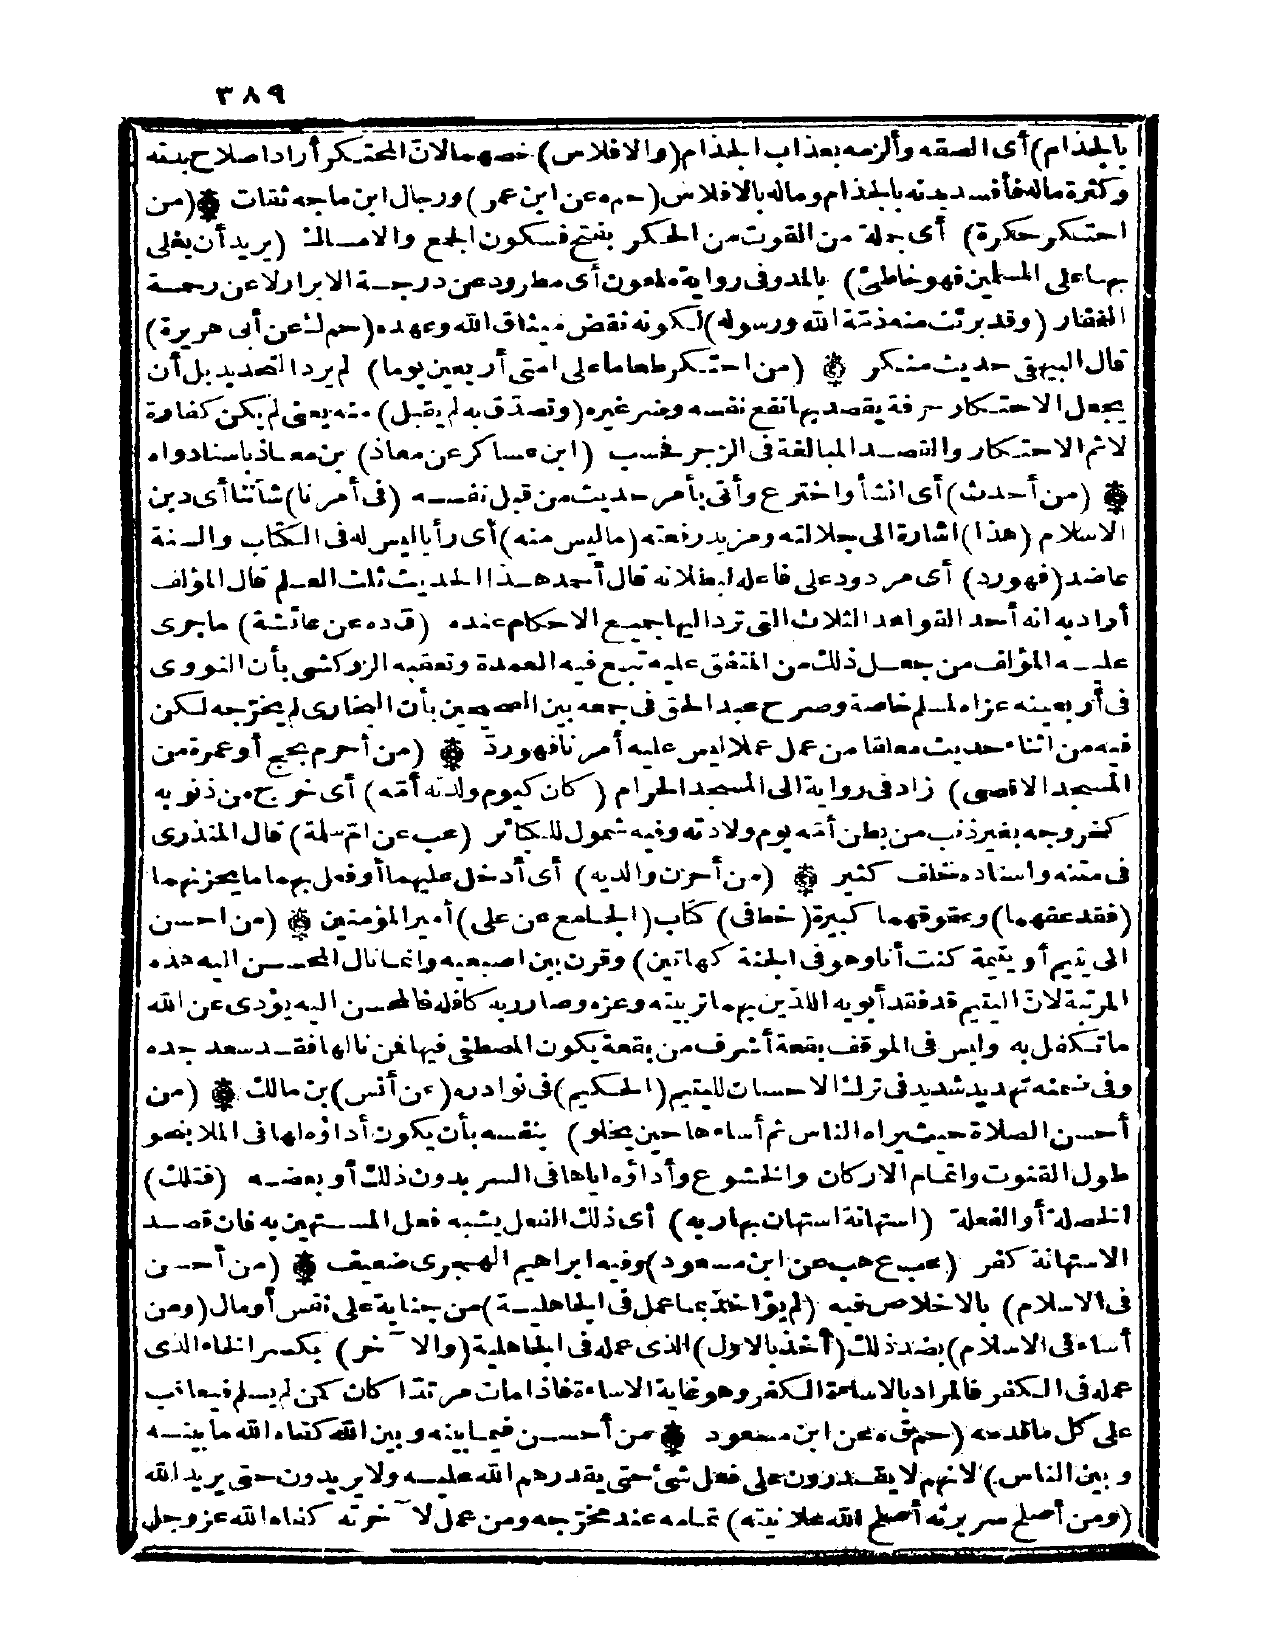 ٣٨٩
بالجذام) أى الصقه وألزمه بعذاب الجذام (والافلاس) خصهما لان المحتكر أراد اصلاح بدنه
وكثرة ماله فأفسد بدنه بالجذام وماله بالافلاس (حم ه عن ابن عمر) ورجال ابن ماجه ثقات ۞ (من
احتكر حكرة) أى جملة من القوت من الحكر بفتح فسكون الجمع والامساك (يريد أن يغلى
بها على المسلمين فهو خاطئ) بالمد وفى رواية ملعون أى مطرود عن درجة الابرار لا عن رحمة
الغفار (وقد برئت منه ذمّة الله ورسوله) لكونه نقض ميثاق الله وعهده (حم ك عن أبى هريرة)
قال البيهقى حديث منكر ۞ (من احتكر طعاما على امتى أربعين يوما) لم يرد التحديد بل أن
يجعل الاحتكار حرفة يقصد بها نفع نفسه وضر غيره (وتصدّق به لم يقبل) منه يعنى لم يكن كفارة
لاثم الاحتكار والقصد المبالغة فى الزجر فحسب (ابن عساكر عن معاذ) بن معاذ باسناد واه
۞ (من أحدث) أى انشأ واخترع وأتى بأمر حديث من قبل نفسه (فى أمرنا) شأننا أى دين
الاسلام (هذا) اشارة الى جلالته ومزيد رفعته (ما ليس منه) أى رأيا ليس له فى الكتاب والسنة
عاضد (فهو رد) أى مردود على فاعله لبطلانه قال أحمد هذا الحديث ثلث العلم قال المؤلف
أراد به انه أحد القواعد الثلاث التى ترد اليها جميع الاحكام عنده (ق د ه عن عائشة) ما جرى
عليه المؤلف من جعل ذلك من المتفق عليه تبع فيه العمدة وتعقبه الزركشى بأن النووى
فى أربعينه عزاه لمسلم خاصة وصرح عبد الحق فى جمعه بين الصحيحين بأن البخارى لم يخرّجه لكن
فيه من اثناء حديث معلقا من عمل عملا ليس عليه أمرنا فهو ردّ ۞ (من أحرم بحج أو عمرة من
المسجد الاقصى) زاد فى رواية الى المسجد الحرام (كان كيوم ولدته أمّه) أى خرج من ذنوبه
كخروجه بغير ذنب من بطن أمّه يوم ولادته وفيه شمول للكبائر (عب عن امّ سلمة) قال المنذرى
فى متنه واسناده خلاف كثير ۞ (من أحزن والديه) أى أدخل عليهما أو فعل بهما ما يحزنهما
(فقد عقهما) وعقوقهما كبيرة (خط فى) كتاب (الجامع عن على) أمير المؤمنين ۞ (من احسن
الى يتيم أو يتيمة كنت أنا وهو فى الجنة كهاتين) وقرن بين اصبعيه وانما نال المحسن اليه هذه
المرتبة لانّ اليتيم قد فقد أبويه اللذين بهما تربيته وعزه وصار ربه كافله فالمحسن اليه يؤدى عن الله
ما تكفل به وليس فى الموقف بقعة أشرف من بقعة يكون المصطفى فيها فمن نالها فقد سعد جده
وفى ضمنه تهديد شديد فى ترك الاحسان لليتيم (الحكيم) فى نوادره (عن أنس) بن مالك ۞ (من
أحسن الصلاة حيث يراه الناس ثم أساءها حين يخلو) بنفسه بأن يكون أداؤه لها فى الملا بنحو
طول القنوت واتمام الاركان والخشوع وأداؤه اياها فى السر بدون ذلك أو بعضه (فتلك)
الخصلة أو الفعلة (استهانة استهان بها ربه) أى ذلك الفعل يشبه فعل المستهين به فان قصد
الاستهانة كفر (عب ع هب عن ابن مسعود) وفيه ابراهيم الهجرى ضعيف ۞ (من أحسن
فى الاسلام) بالاخلاص فيه (لم يؤاخذ بما عمل فى الجاهلية) من جناية على نفس أو مال (ومن
أساء فى الاسلام) بضد ذلك (أخذ بالاول) الذى عمله فى الجاهلية (والآخر) بكسر الخاء الذى
عمله فى الكفر فالمراد بالاساءة الكفر وهو غاية الاساءة فاذا مات مرتدّا كان كمن لم يسلم فيعاقب
على كل ما قدمه (حم ق ه عن ابن مسعود ۞ من أحسن فيما بينه وبين الله كفاه الله ما بينه
وبين الناس) لانهم لا يقدرون على فعل شئ حتى يقدرهم الله عليه ولا يريدون حتى يريد الله
(ومن أصلح سريرته أصلح الله علانيته) تمامه عند مخرّجه ومن عمل لآخرته كفاه الله عز وجل